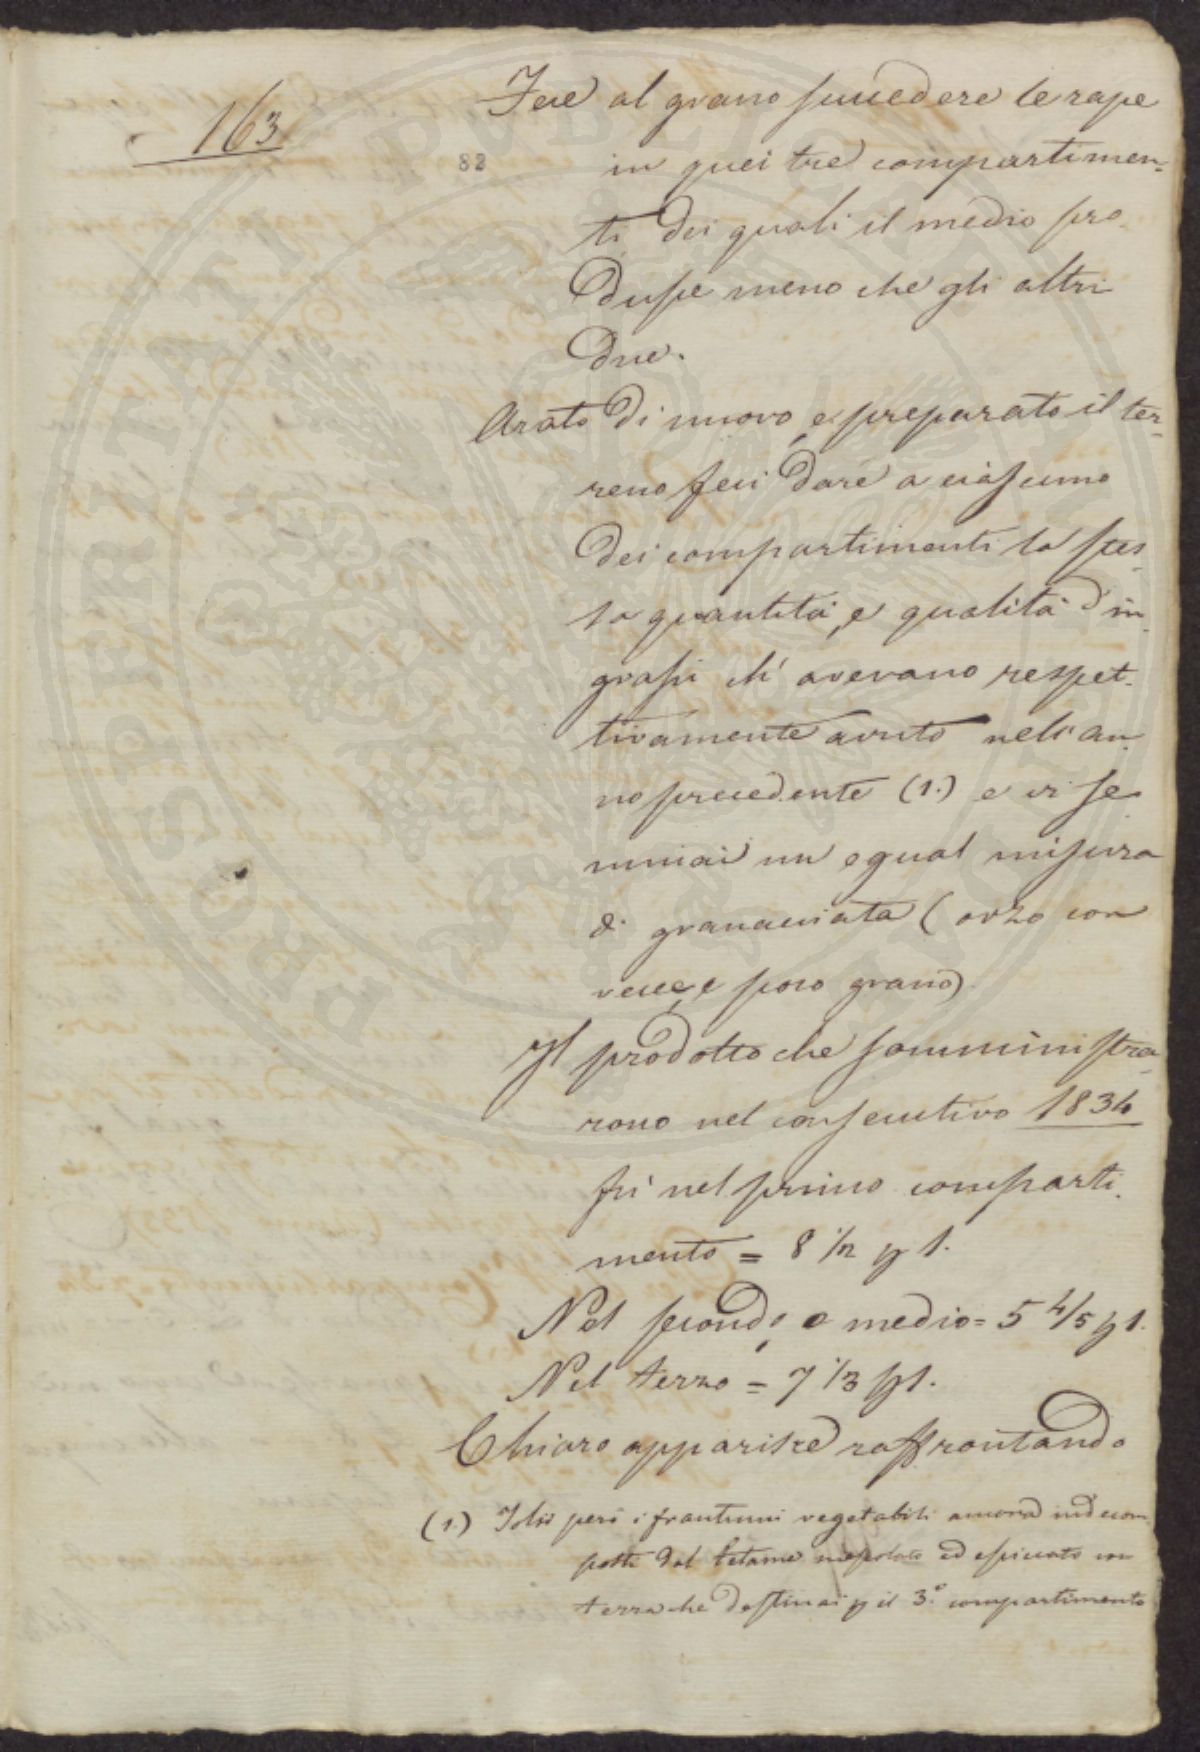 163
82
Feci al grano succedere le rape
in quei tre compartimen-
ti dei quali il medio pro-
dusse meno che gli altri
due.
Arato di nuovo, e preparato il ter-
reno feci dare a ciascuno
dei compartimenti la stes-
sa quantità, e qualità d'in-
grassi ch'avevano respet-
tivamente avuto nell'an-
no precedente (1.) e vi se-
minai un egual misura
di granacciata (orzo con
vecce, e poco grano)
Il prodotto che somministra-
rono nel consecutivo 1834
fù nel primo comparti-
mento = 8 1/2 p 1.
Nel secondo, o medio = 5 4/5 p 1.
Nel terzo = 7 1/3 p 1.
Chiaro apparisce raffrontando
(1.) Tolsi però i frantumi vegetabili ancora indecom-
posti dal letame mescolato ed in
terra che destinai p il 3.° compartimento
PROSPERITATI PUBLICAE AUGENDAE